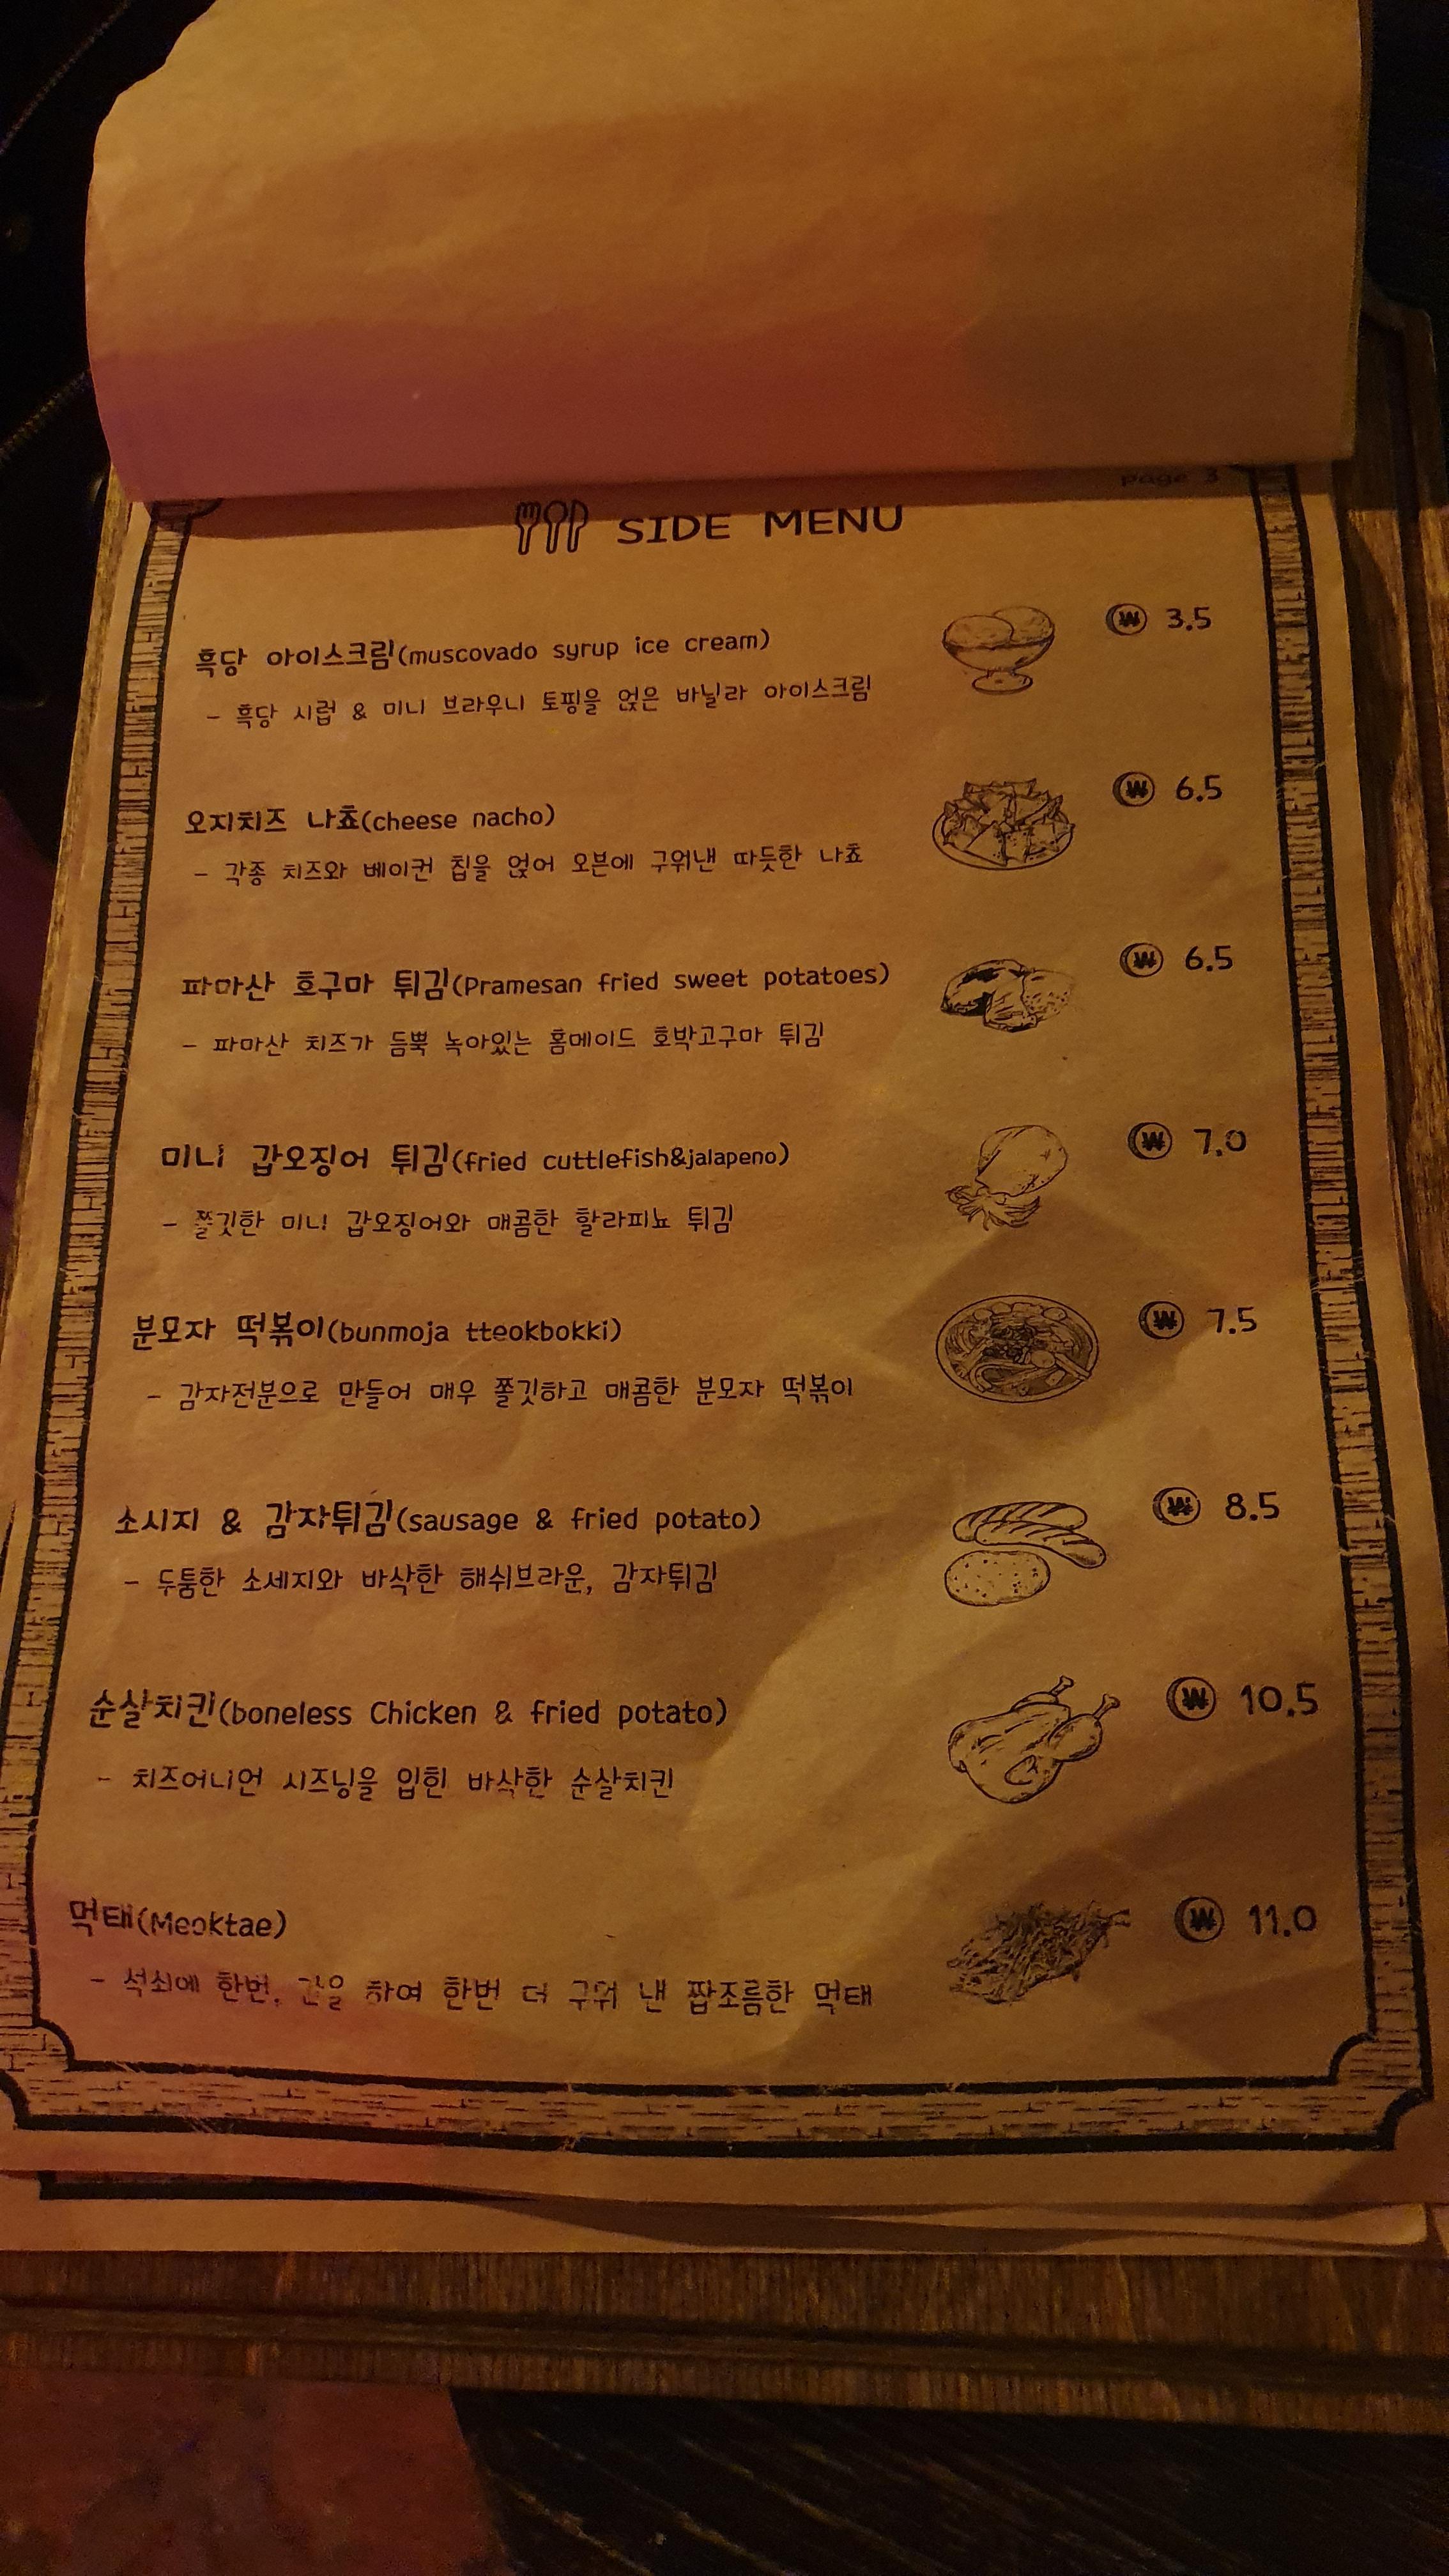 page 3
SIDE MENU
흑당 아이스크림(muscovado syrup ice cream) ₩ 3.5
- 흑당 시럽 & 미니 브라우니 토핑을 얹은 바닐라 아이스크림
오지치즈 나쵸(cheese nacho) ₩ 6.5
- 각종 치즈와 베이컨 칩을 얹어 오븐에 구워낸 따듯한 나쵸
파마산 호구마 튀김(Pramesan fried sweet potatoes) ₩ 6.5
- 파마산 치즈가 듬뿍 녹아있는 홈메이드 호박고구마 튀김
미니 갑오징어 튀김(fried cuttlefish&jalapeno) ₩ 7.0
- 쫄깃한 미니 갑오징어와 매콤한 할라피뇨 튀김
분모자 떡볶이(bunmoja tteokbokki) ₩ 7.5
- 감자전분으로 만들어 매우 쫄깃하고 매콤한 분모자 떡볶이
소시지 & 감자튀김(sausage & fried potato) ₩ 8.5
- 두툼한 소세지와 바삭한 해쉬브라운, 감자튀김
순살치킨(boneless Chicken & fried potato) ₩ 10.5
- 치즈어니언 시즈닝을 입힌 바삭한 순살치킨
먹태(Meoktae) ₩ 11.0
- 석쇠에 한번, 간을 하여 한번 더 구워 낸 짭조름한 먹태